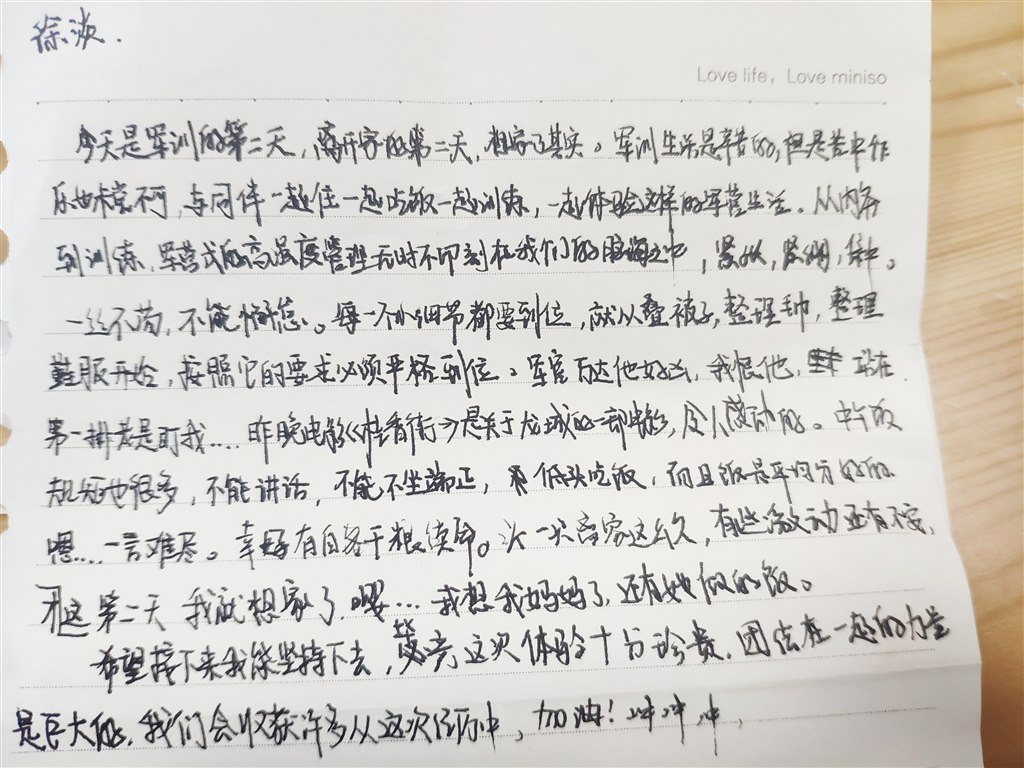 徐
Love life, Love miniso
今天是军训的第二天,离开家的第二天,想家了其实。军训生活是辛苦的,但是苦中作
乐也未尝不可,与同伴一起住一起吃饭一起训练,一起体验这样的军营生活。从内务
到训练,军营式的高强度管理无时不印刻在我们的脑海之中,紧张,紧绷,
一丝不苟,不能懈怠。每一个小细节都要到位,就从叠被子,整理,整理
鞋服开始,按照它的要求必须严格到位。军官 他好凶,我恨他,站在
第一排老是盯我....昨晚电影《 》是关于 的一部电影,令人感动的。中午饭
规矩也很多,不能讲话,不能不坐端正,低头吃饭,而且饭是平均分好的
嗯....一言难尽。幸好有自备干粮续命。头一次离家这么久,有些激动还有不安,
才这第二天我就想家了,嘤...我想我妈妈了,还有她做的饭。
希望接下来我能坚持下去,毕竟这次体验十分珍贵,团结在一起的力量
是巨大的,我们会收获许多从这次经历中,加油!冲冲冲,